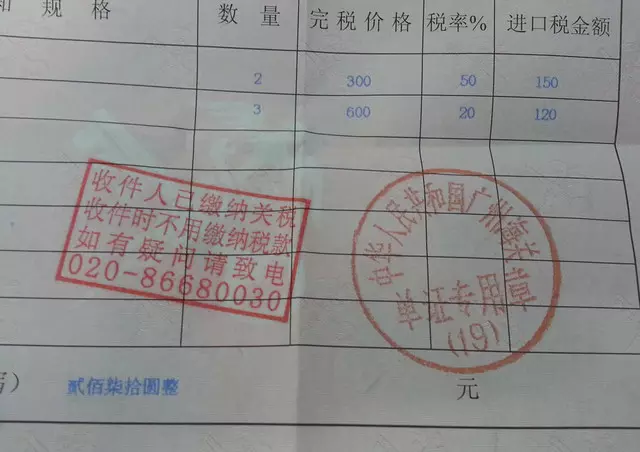 和 规 格 数 量 完 税 价 格 税率% 进口税金额
2 300 50 150
3 600 20 120
收件人已缴纳关税
收件时不用缴纳税款
如有疑问请致电
020-86680030
中华人民共和国广州海关
单证专用章
(19)
写） 贰佰柒拾圆整 元